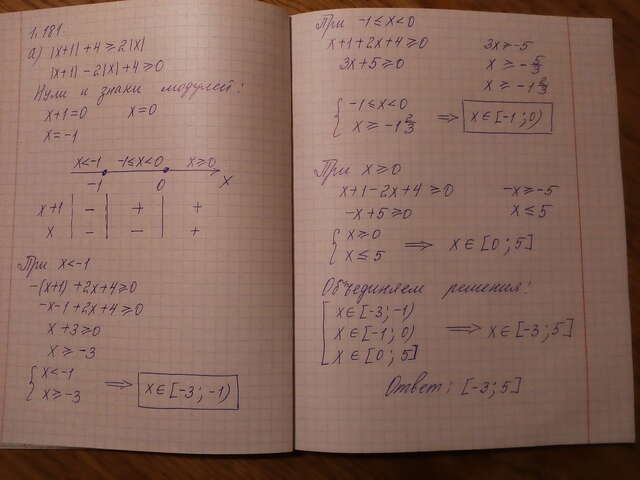 1.181.
а) |x+1|+4≥2|x|
|x+1|-2|x|+4≥0
Нули и знаки модулей:
x+1=0 x=0
x=-1
x<-1 -1≤x<0 x≥0
-1 0 x
x+1 | - | + | +
x | - | - | +
При x<-1
-(x+1)+2x+4≥0
-x-1+2x+4≥0
x+3≥0
x≥-3
{ x<-1
x≥-3 ⇒ x∈[-3;-1)
При -1≤x<0
x+1+2x+4≥0 3x≥-5
3x+5≥0 x≥-5/3
x≥-1 2/3
{ -1≤x<0
x≥-1 2/3 ⇒ x∈[-1;0)
При x≥0
x+1-2x+4≥0 -x≥-5
-x+5≥0 x≤5
{ x≥0
x≤5 ⇒ x∈[0;5]
Объединяем решения:
[ x∈[-3;-1)
x∈[-1;0) ⇒ x∈[-3;5]
x∈[0;5]
Ответ: [-3;5]